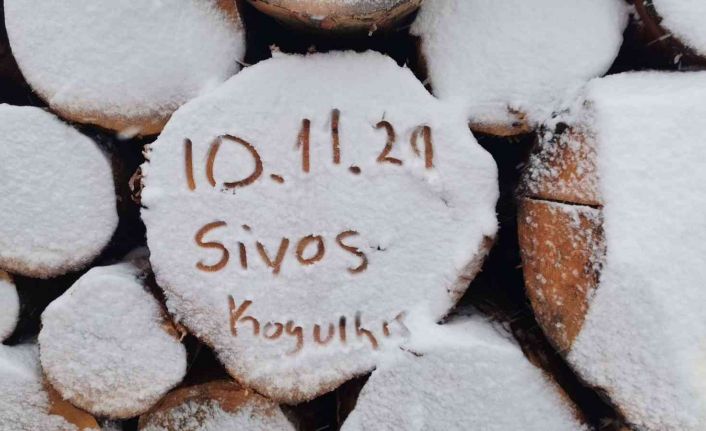 10.11.21
Sivas
Koyulhis